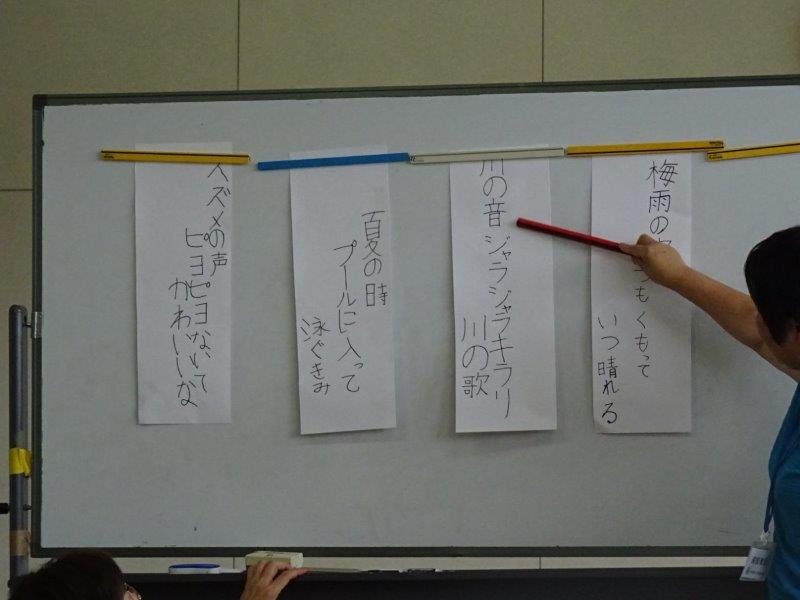 梅雨の
つもくもって
いつ晴れる
川の音
ジャラジャラキラリ
川の歌
夏の時
プールに入って
泳ぐきみ
スズメの声
ピヨピヨないて
かわいいな